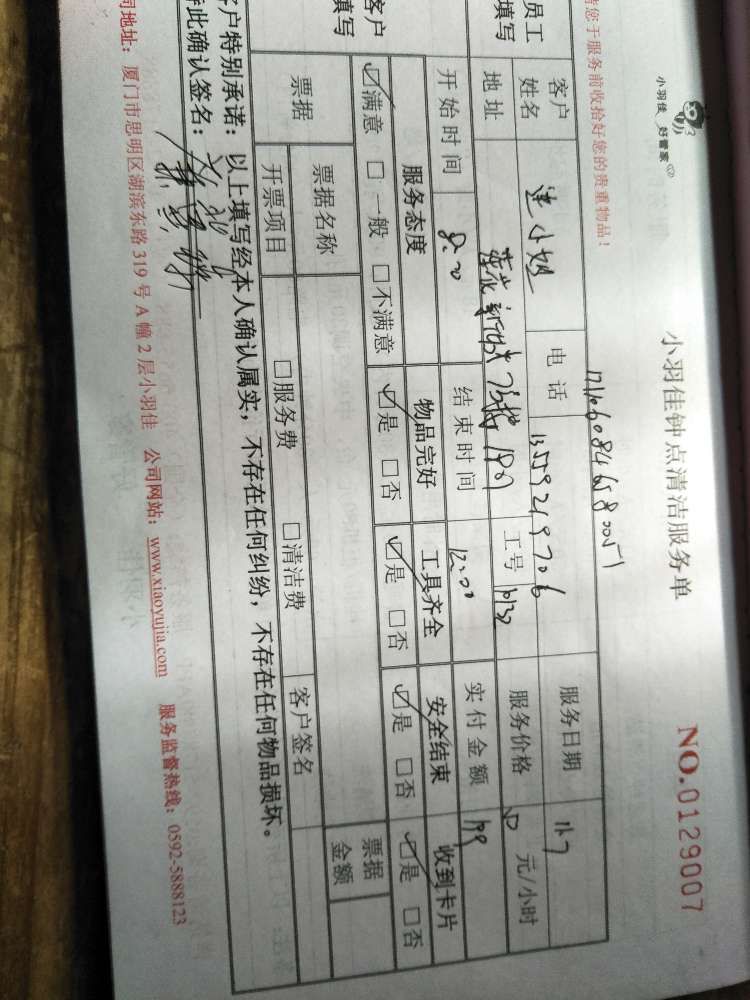 小羽佳 好管家
小羽佳钟点清洁服务单
NO.0129007
请您于服务前收拾好您的贵重物品！
员工填写
客户姓名
小姐
电话
服务日期
11.7
地址
工号
服务价格
元/小时
开始时间
8:00
结束时间
12:00
实付金额
199
客户填写
服务态度 物品完好 工具齐全 安全结束 收到卡片
☑满意 □一般 □不满意 ☑是 □否 ☑是 □否 ☑是 □否 ☑是 □否
票据
票据名称
票据金额
开票项目
□服务费 □清洁费
客户签名
客户特别承诺：以上填写经本人确认属实，不存在任何纠纷，不存在任何物品损坏。
特此确认签名：
司地址：厦门市思明区湖滨东路319号A幢2层小羽佳 公司网站：www.xiaoyujia.com 服务监督热线：0592-5888123